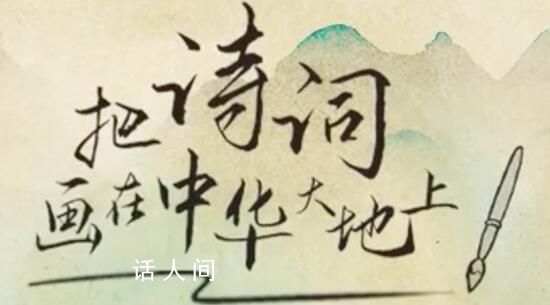 把诗词
画在中华大地上
话人间